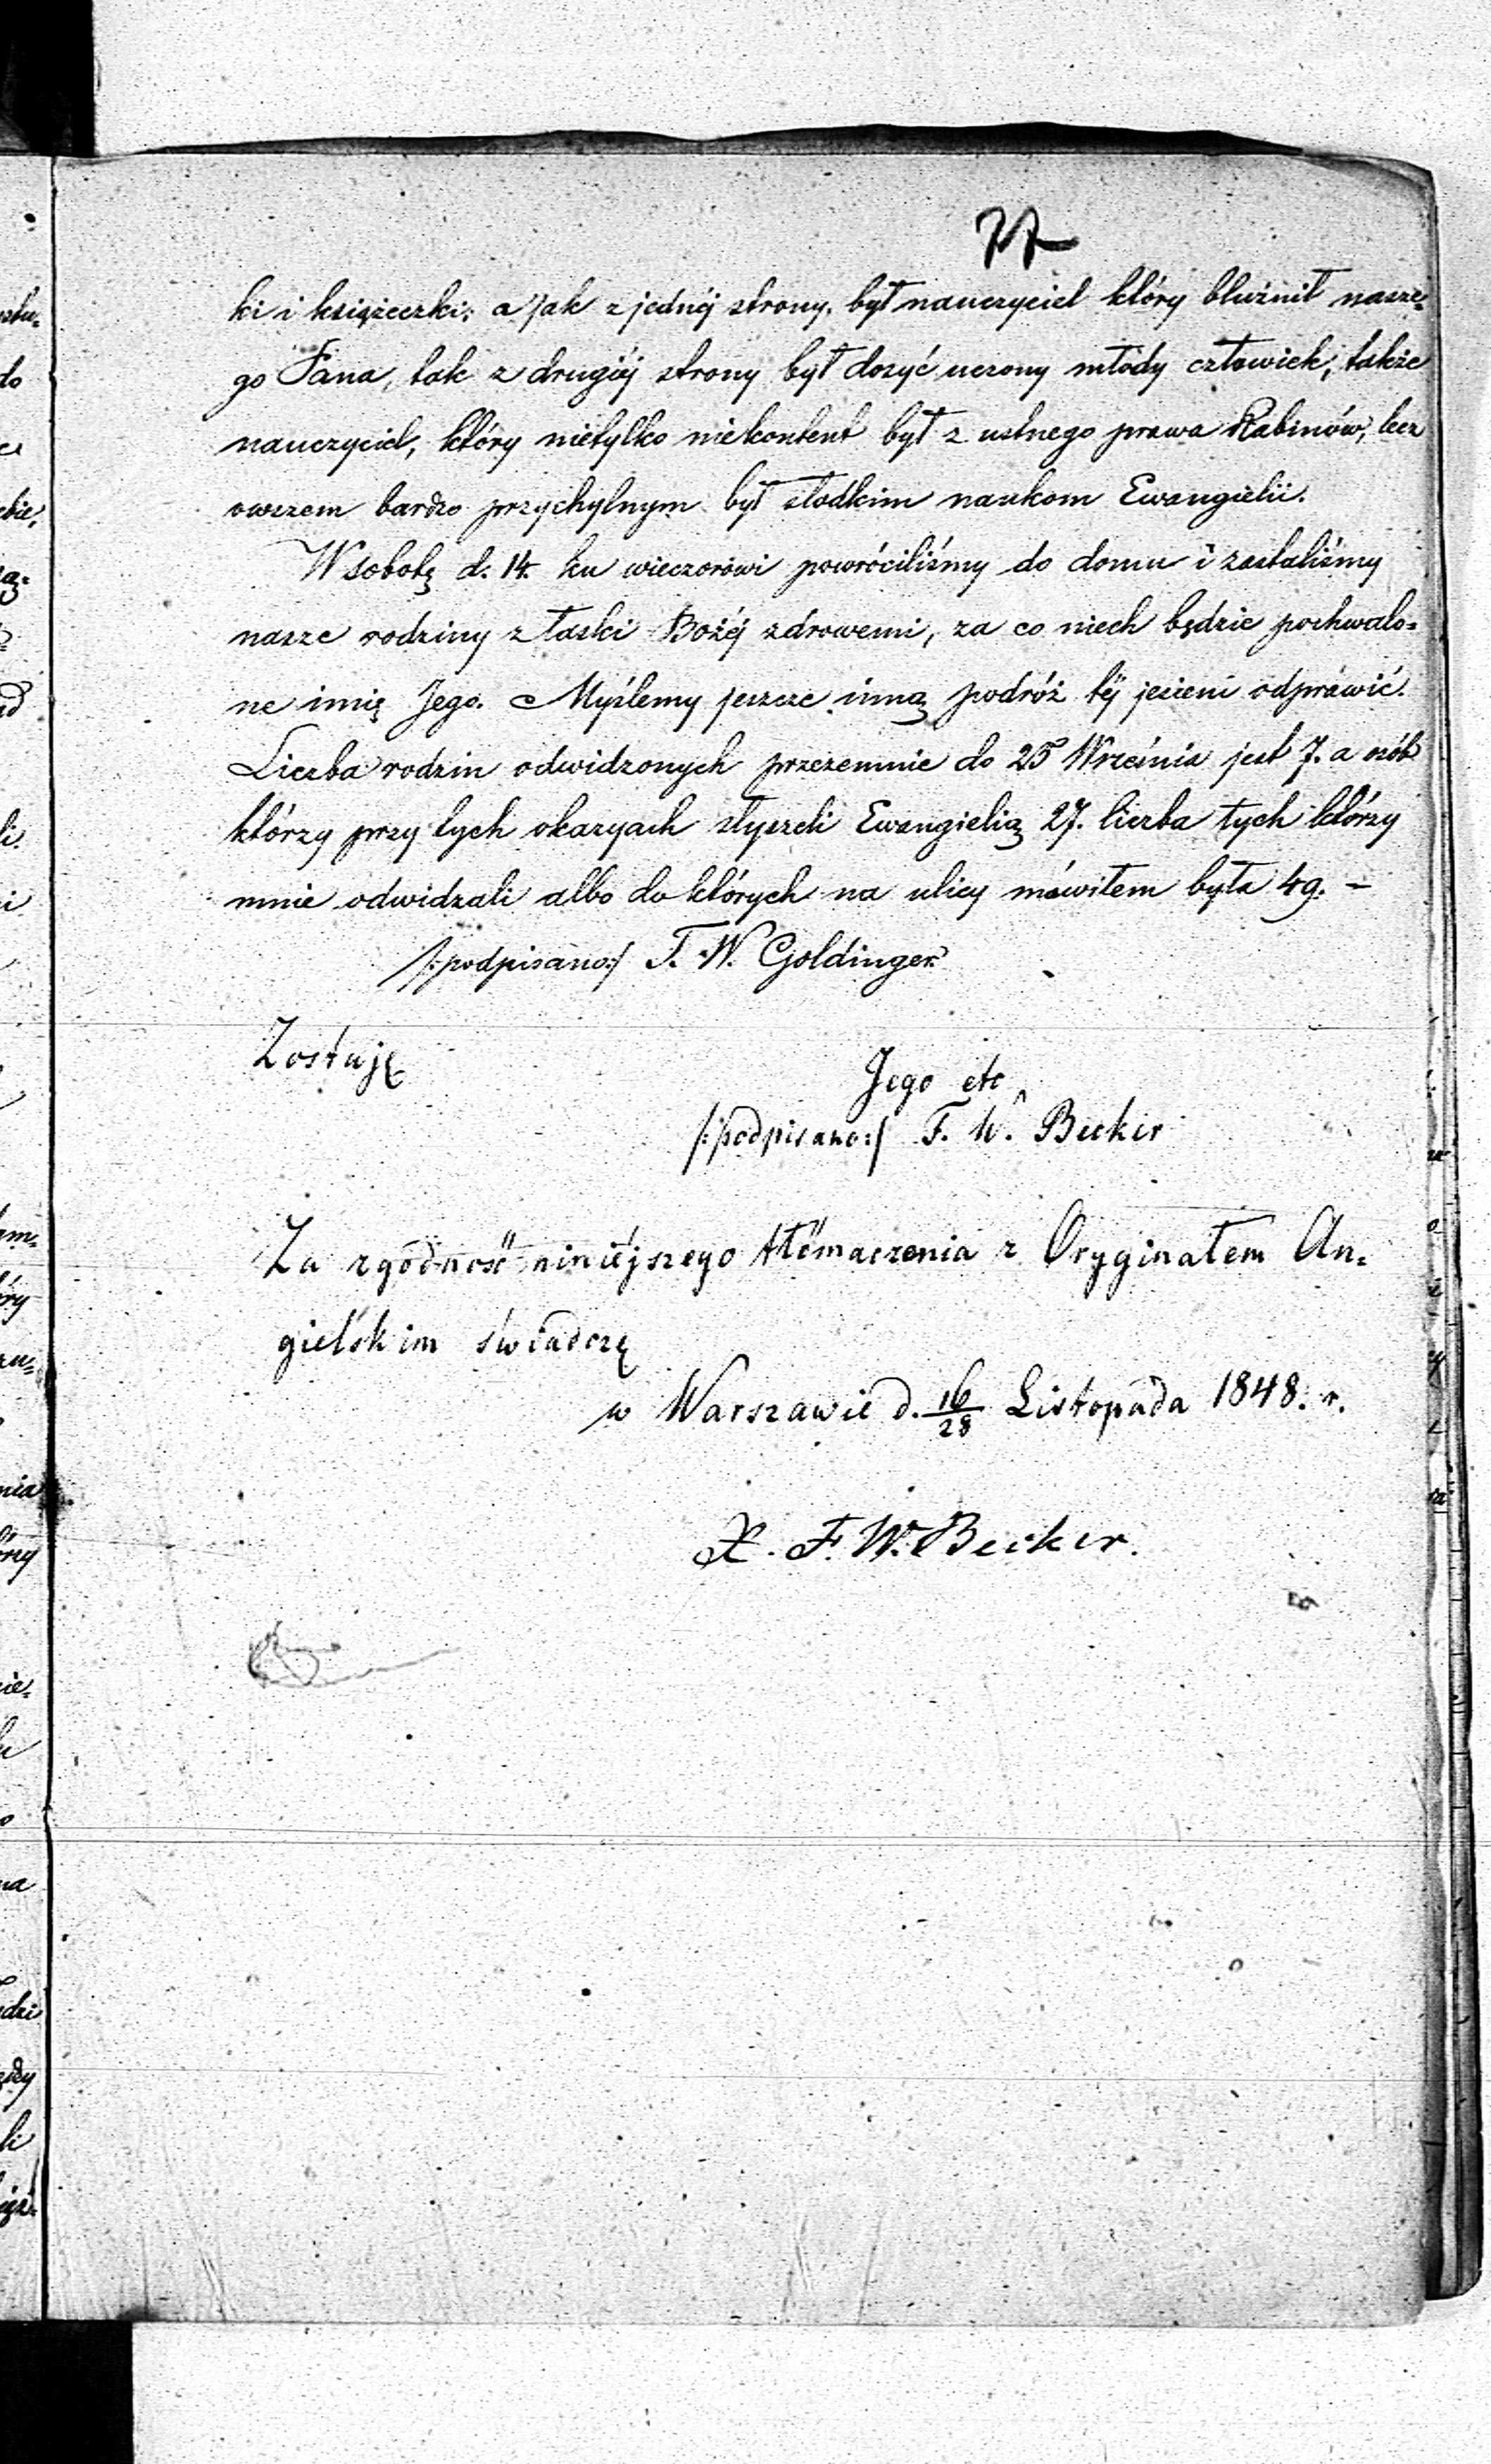 77
ki i książeczki; a jak z jednéj strony, był nauczyciel który bluźnił nasze=
go Pana, tak z drugiéj strony był dosyć uczony młody człowiek, także
nauczyciel, który nietylko niekontent był z ustnego prawa Rabinów, lecz
owszem bardzo przychylnym był słodkim naukom Ewangielii.
W sobotę d. 14. ku wieczorowi powróciliśmy do domu i zastaliśmy
nasze rodziny z łaski Bożéj zdrowemi, za co niech będzie pochwalo=
ne imię Jego. Myślemy jeszcze inną podróż téj jesieni odprawić.
Liczba rodzin odwidzonych przezemnie do 25 Września jest 7. a osób
którzy przy tych okazyach słyszeli Ewangielią 27. liczba tych którzy
mnie odwidzali albo do których na ulicy mówiłem była 49. –
/:podpisano:/ T. W. Goldinger.
Zostaję
Jego etc
/:podpisano:/ F. W. Becker
Za zgodność niniéjszego tłómaczenia z Oryginałem An=
gielskim świadczę
w Warszawie d. 16/28 Listopada 1848. r.
X. F. W. Becker.